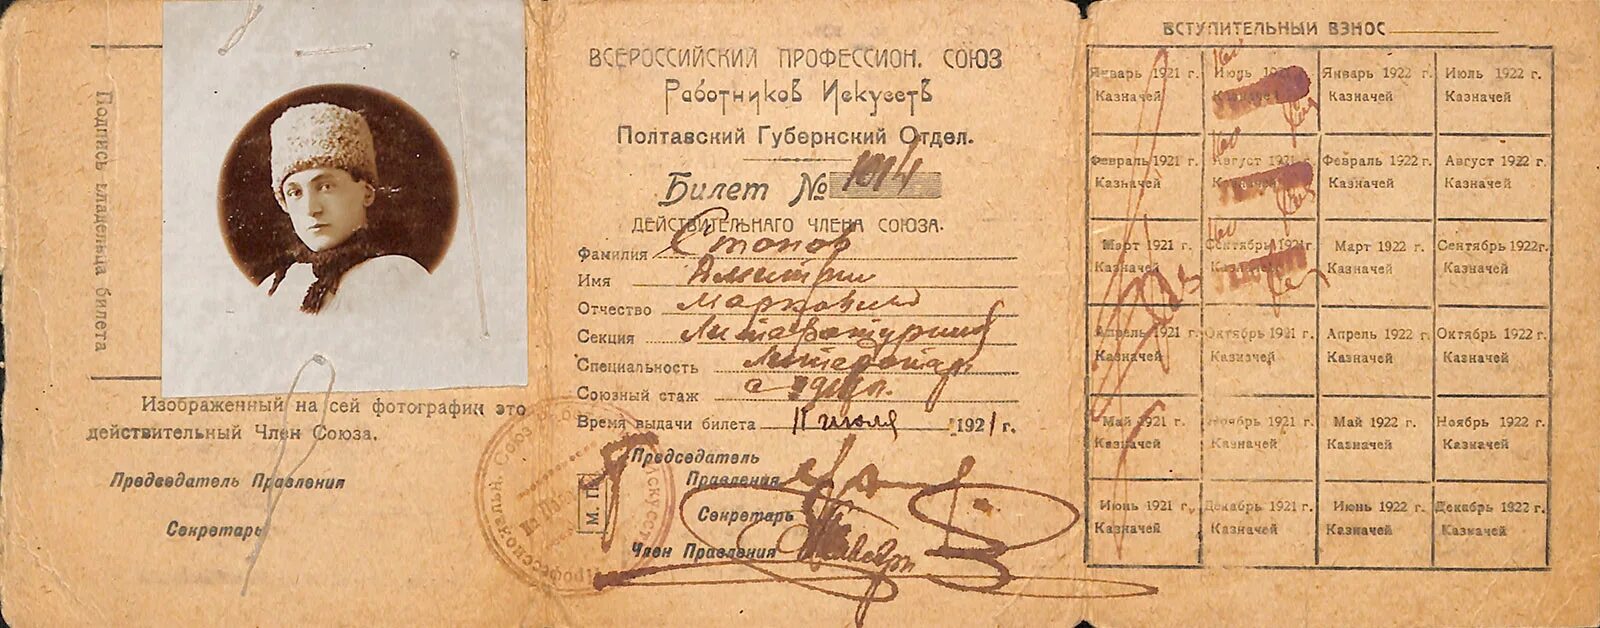 Подпись владельца билета
Изображенный на сей фотографии это
действительный Член Союза.
Председатель Правления
Секретарь
ВСЕРОССИЙСКИЙ ПРОФЕССИОН. СОЮЗ
Работников Искусств
Полтавский Губернский Отдел.
Билет № 1014
ДЕЙСТВИТЕЛЬНАГО ЧЛЕНА СОЮЗА.
Фамилия Стонов
Имя Дмитрий
Отчество Маркович
Секция Литературная
Специальность Литератор
Союзный стаж с
Время выдачи билета 11 июля 1921 г.
Председатель
Правления
Секретарь
М. П.
Член Правления
ВСТУПИТЕЛЬНЫЙ ВЗНОС
Январь 1921 г. Июль 1921 г. Январь 1922 г. Июль 1922 г.
Казначей Казначей Казначей Казначей
Февраль 1921 г. Август 1921 г. Февраль 1922 г. Август 1922 г.
Казначей Казначей Казначей Казначей
Март 1921 г. Сентябрь 1921 г. Март 1922 г. Сентябрь 1922 г.
Казначей Казначей Казначей Казначей
Апрель 1921 г. Октябрь 1921 г. Апрель 1922 г. Октябрь 1922 г.
Казначей Казначей Казначей Казначей
Май 1921 г. Ноябрь 1921 г. Май 1922 г. Ноябрь 1922 г.
Казначей Казначей Казначей Казначей
Июнь 1921 г. Декабрь 1921 г. Июнь 1922 г. Декабрь 1922 г.
Казначей Казначей Казначей Казначей